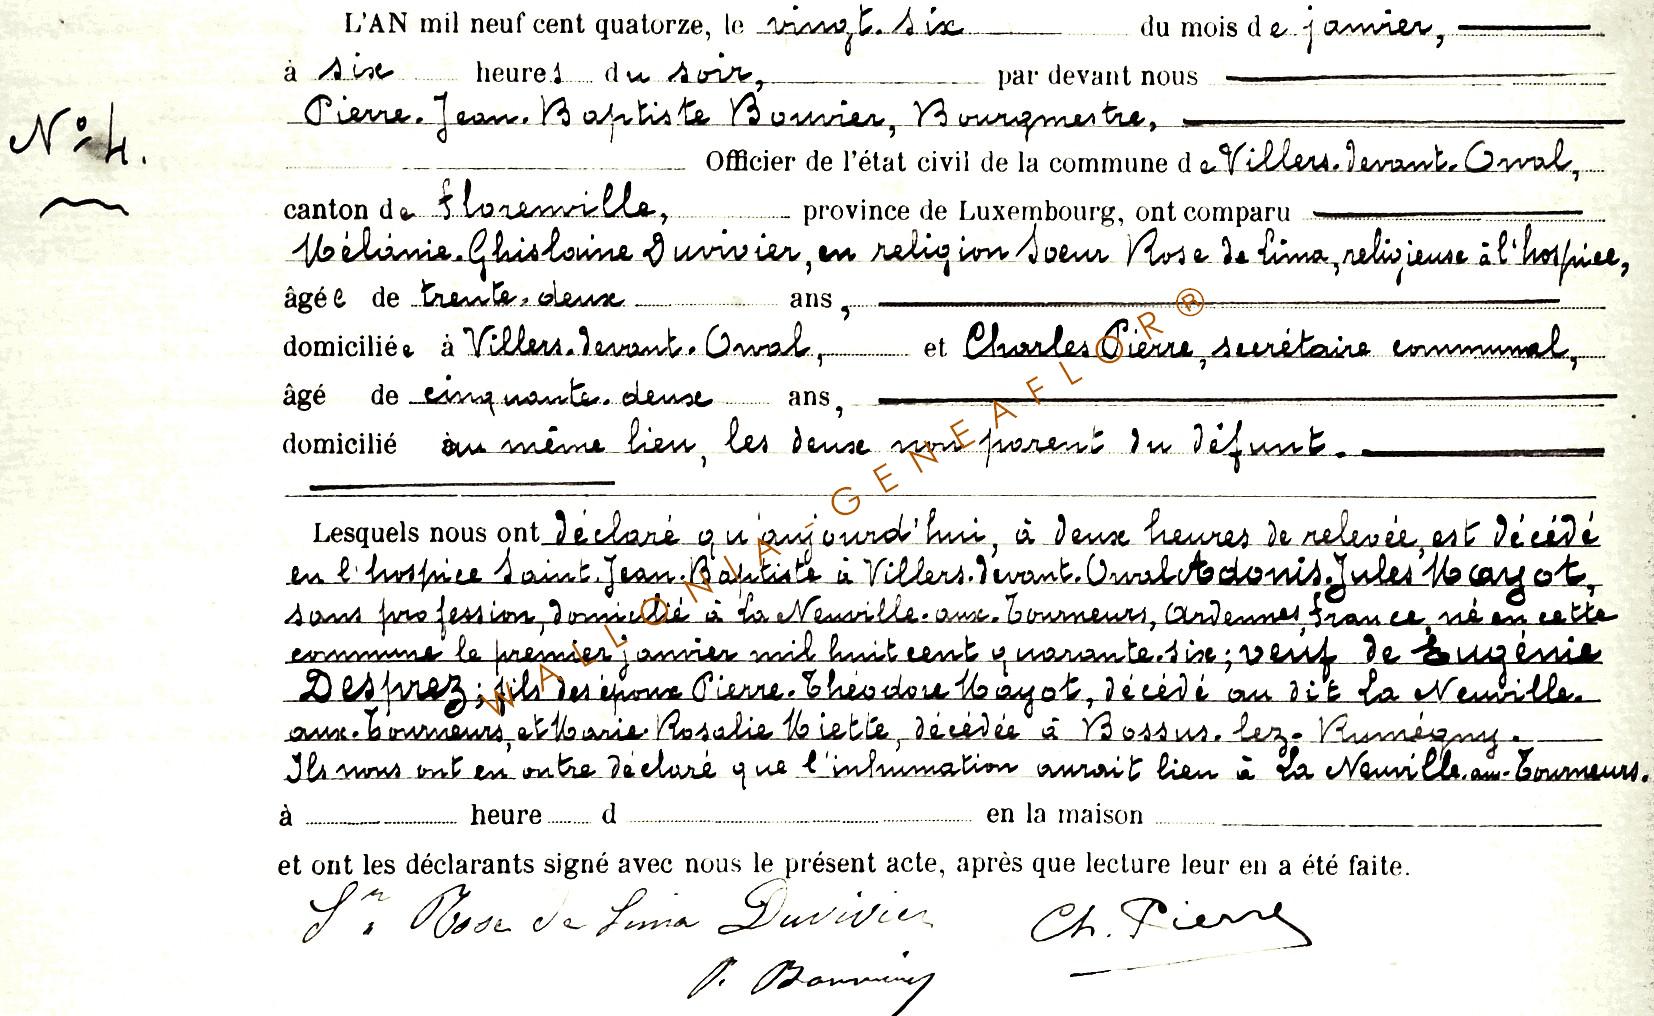 L'AN mil neuf cent quatorze, le vingt-six du mois de janvier,
à six heures du soir, par devant nous
Pierre-Jean-Baptiste Bouvier, Bourgmestre,
N° 4.
Officier de l'état civil de la commune de Villers-devant-Orval,
canton de Florenville, province de Luxembourg, ont comparu
Mélanie-Ghislaine Duvivier, en religion Soeur Rose de Lima, religieuse à l'hospice,
âgée de trente-deux ans,
domiciliée à Villers-devant-Orval, et Charles Pierre, secrétaire communal,
âgé de cinquante-deux ans,
domicilié au même lieu, les deux non parent du défunt.
Lesquels nous ont déclaré qu'aujourd'hui, à deux heures de relevée, est décédé
en l'hospice Saint-Jean-Baptiste à Villers-devant-Orval Adonis-Jules Mayot,
sans profession, domicilié à La Neuville-aux-Tourneurs, Ardennes, France, né en cette
commune le premier janvier mil huit cent quarante-six; veuf de Eugénie
Desprez; fils des époux Pierre-Théodore Mayot, décédé au dit La Neuville-
aux-Tourneurs, et Marie-Rosalie Miette, décédée à Bossus-lez-Rumégny.
Ils nous ont en outre déclaré que l'inhumation aurait lieu à La Neuville-aux-Tourneurs.
à heure d en la maison
et ont les déclarants signé avec nous le présent acte, après que lecture leur en a été faite.
Sr. Rose de Lima Duvivier Ch. Pierre
P. Bouvier
WALLONIA-GENEAFLOR®